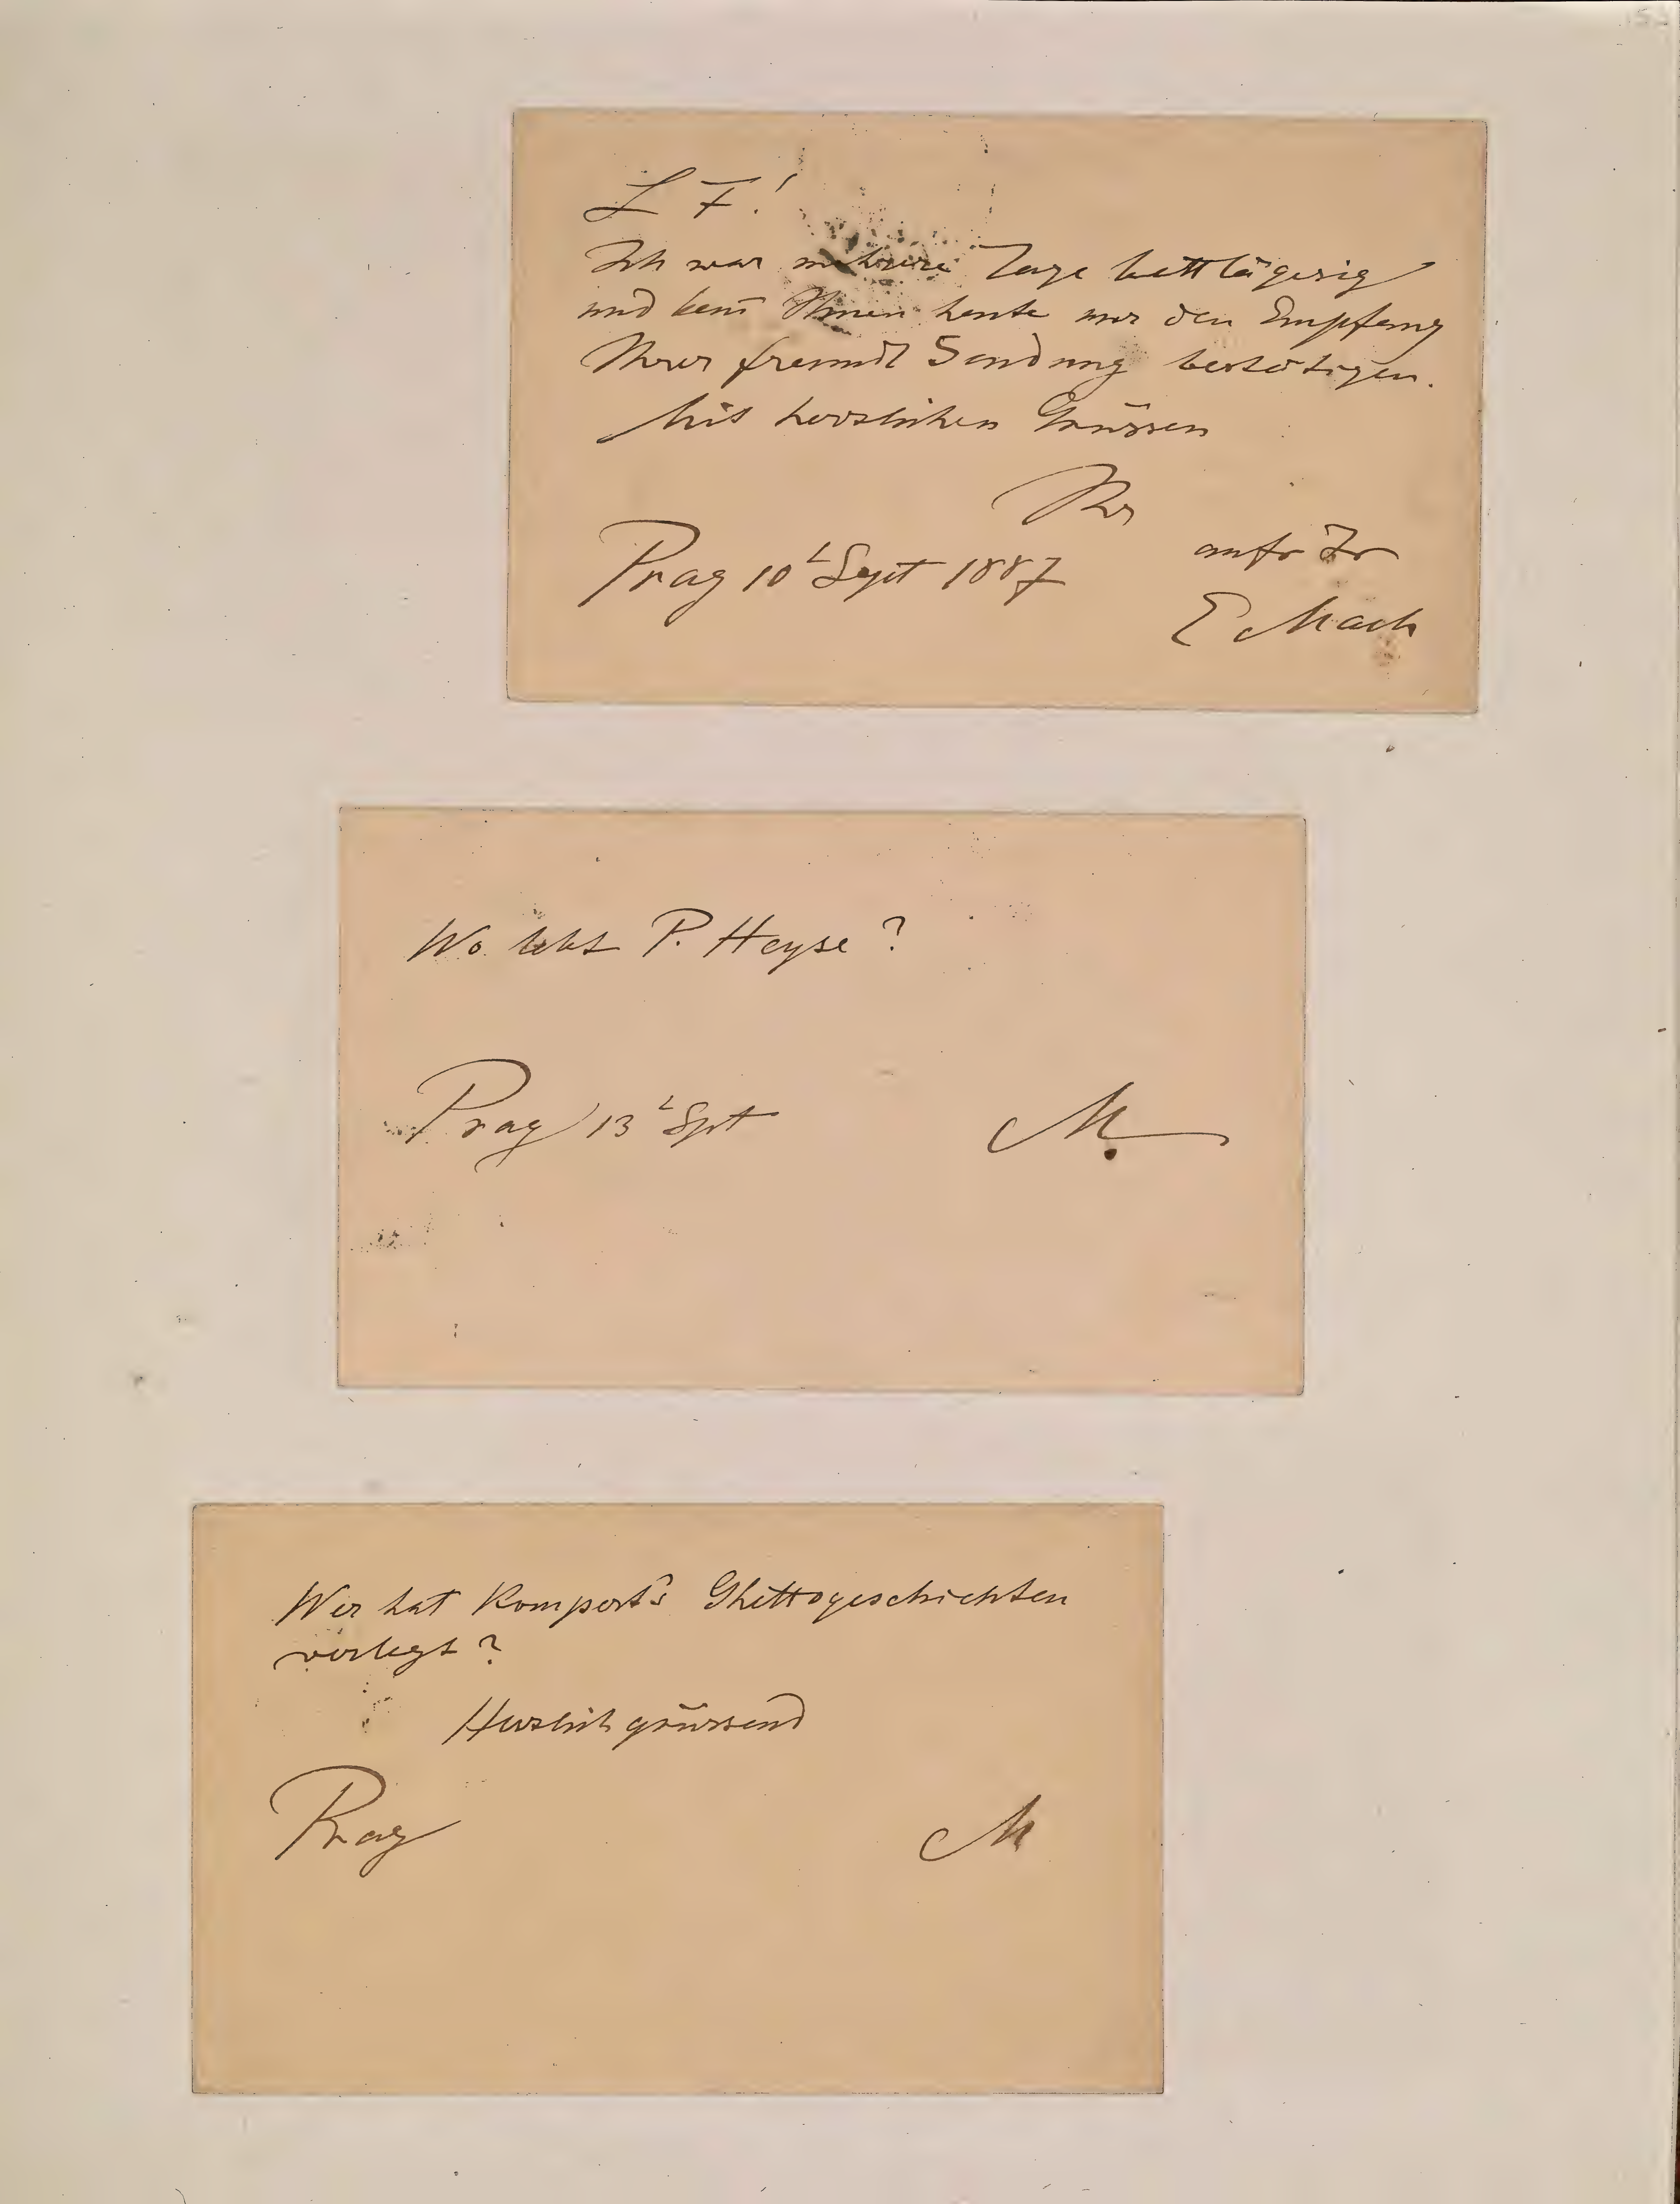 L F!
Ich war mehrere Tage bettlägerig
und kann Ihnen heute nur den Empfang
Ihrer freundl Sendung bestätigen.
Mit herzlichen Grüssen
Ihr
Prag 10t Sept 1887
E Mach
Wo lebt P. Heyse?
Prag 13t Spt
M.
Wer hat Kompert's Ghettogeschichten
verlegt?
Herzlich grüssend
Prag
M